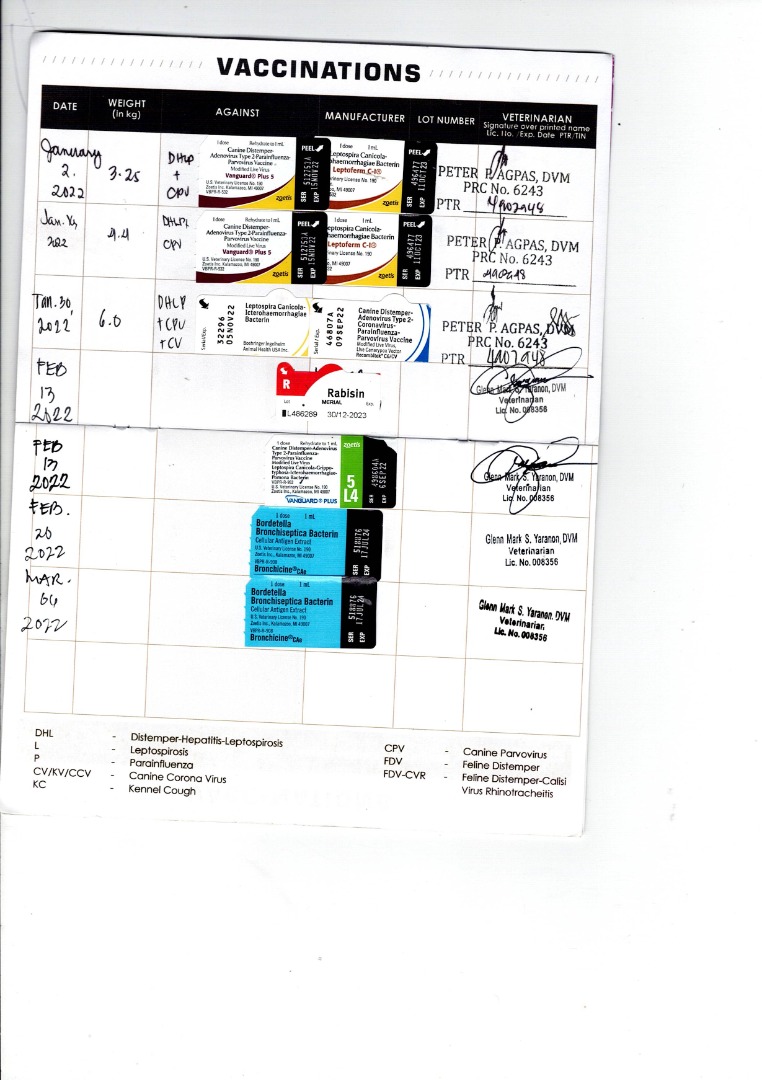 VACCINATIONS
DATE WEIGHT (in kg) AGAINST MANUFACTURER LOT NUMBER VETERINARIAN
Signature over printed name
Lic. No. /Exp. Date PTR/TIN
January
2.
2022
3.25
DHLP
+
CPV
1 dose Rehydrate to 1 mL
Canine Distemper-
Adenovirus Type 2-Parainfluenza-
Parvovirus Vaccine
Modified Live Virus
Vanguard® Plus 5
U.S. Veterinary License No. 190
Zoetis Inc. Kalamazoo, MI 49007
VBPR-R-532
zoetis
PEEL
SER 512751A
EXP 15NOV22
1 dose 1 mL
Leptospira Canicola-
Leptoferm C-I®
MI 49007
zoetis
PEEL
SER 496477
EXP 11OCT23
PETER P. AGPAS, DVM
PRC No. 6243
PTR 4902948
2022
4.4
CPV
1 dose Rehydrate to 1 mL
Canine Distemper-
Adenovirus Type 2-Parainfluenza-
Parvovirus Vaccine
Modified Live Virus
Vanguard® Plus 5
U.S. Veterinary License No. 190
Zoetis Inc. Kalamazoo, MI 49007
VBPR-R-532
zoetis
PEEL
SER 512751A
EXP 15NOV22
1 dose 1 mL
Leptospira Canicola-
Leptoferm C-I®
MI 49007
zoetis
PEEL
SER 496477
EXP 11OCT23
PETER P. AGPAS, DVM
PRC No. 6243
PTR
Jan. 30,
2022
6.0
DHLP
+CPV
+CV
Serial/Exp.
32296
05NOV22
Leptospira Canicola-
Icterohaemorrhagiae
Bacterin
Boehringer Ingelheim
Animal Health USA Inc.
Serial / Exp.
46807A
09SEP22
Canine Distemper-
Adenovirus Type 2-
Coronavirus-
Parainfluenza-
Parvovirus Vaccine
Modified Live Virus,
Live Canarypox Vector
Recombitek® C6/CV
PETER P. AGPAS, DVM
PRC No. 6243
PTR 4902948
FEB
13
2022
R
Rabisin
MERIAL
Lot Exp.
L486289 30/12-2023
Glenn Mark S. Yaranon, DVM
Veterinarian
Lic. No. 008356
FEB
13
2022
1 dose Rehydrate to 1 mL
Canine Distemper-Adenovirus
Type 2-Parainfluenza-
Parvovirus Vaccine
Modified Live Virus
Leptospira Canicola-Grippo-
typhosa-Icterohaemorrhagiae-
Pomona Bacterin
U.S. Veterinary License No. 190
Zoetis Inc., Kalamazoo, MI 49007
VANGUARD® PLUS
zoetis
5
L4
SER 498604A
EXP 6SEP22
Glenn Mark S. Yaranon, DVM
Veterinarian
Lic. No. 008356
FEB.
20
2022
1 dose 1 mL
Bordetella
Bronchiseptica Bacterin
Cellular Antigen Extract
U.S. Veterinary License No. 190
Zoetis Inc., Kalamazoo, MI 49007
Bronchicine®CAe
SER 518876
EXP 17JUL24
Glenn Mark S. Yaranon, DVM
Veterinarian
Lic. No. 008356
MAR.
06
2022
1 dose 1 mL
Bordetella
Bronchiseptica Bacterin
Cellular Antigen Extract
U.S. Veterinary License No. 190
Zoetis Inc., Kalamazoo, MI 49007
Bronchicine®CAe
SER 518876
EXP 17JUL24
Glenn Mark S. Yaranon, DVM
Veterinarian,
Lic. No. 008356
DHL - Distemper-Hepatitis-Leptospirosis
L - Leptospirosis
P - Parainfluenza
CV/KV/CCV - Canine Corona Virus
KC - Kennel Cough
CPV - Canine Parvovirus
FDV - Feline Distemper
FDV-CVR - Feline Distemper-Calisi
Virus Rhinotracheitis